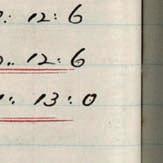 : 12: 6
.. 12: 6
: 13: 0